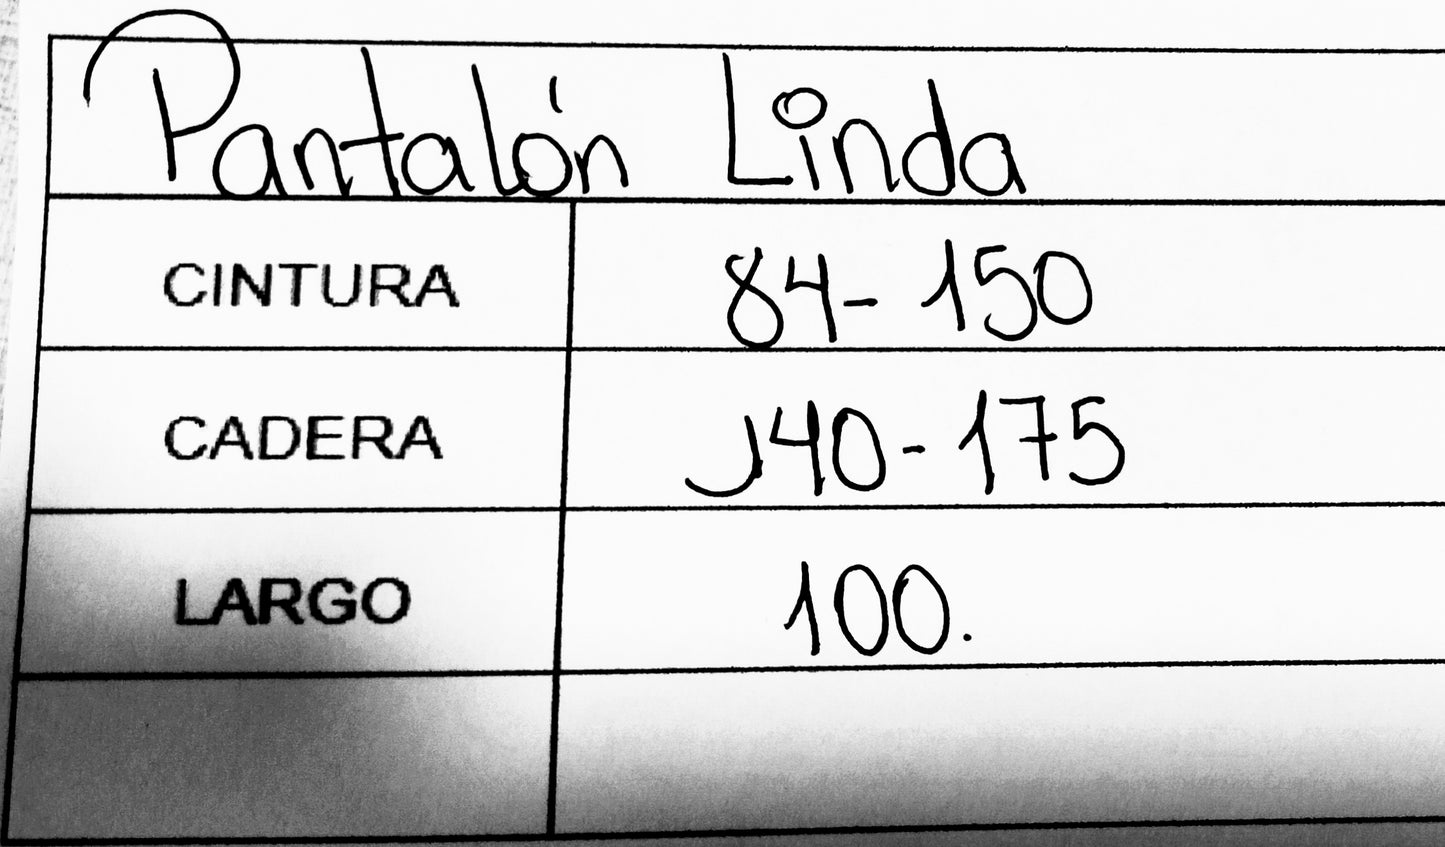 Pantalón Linda
CINTURA 84- 150
CADERA 140-175
LARGO 100.